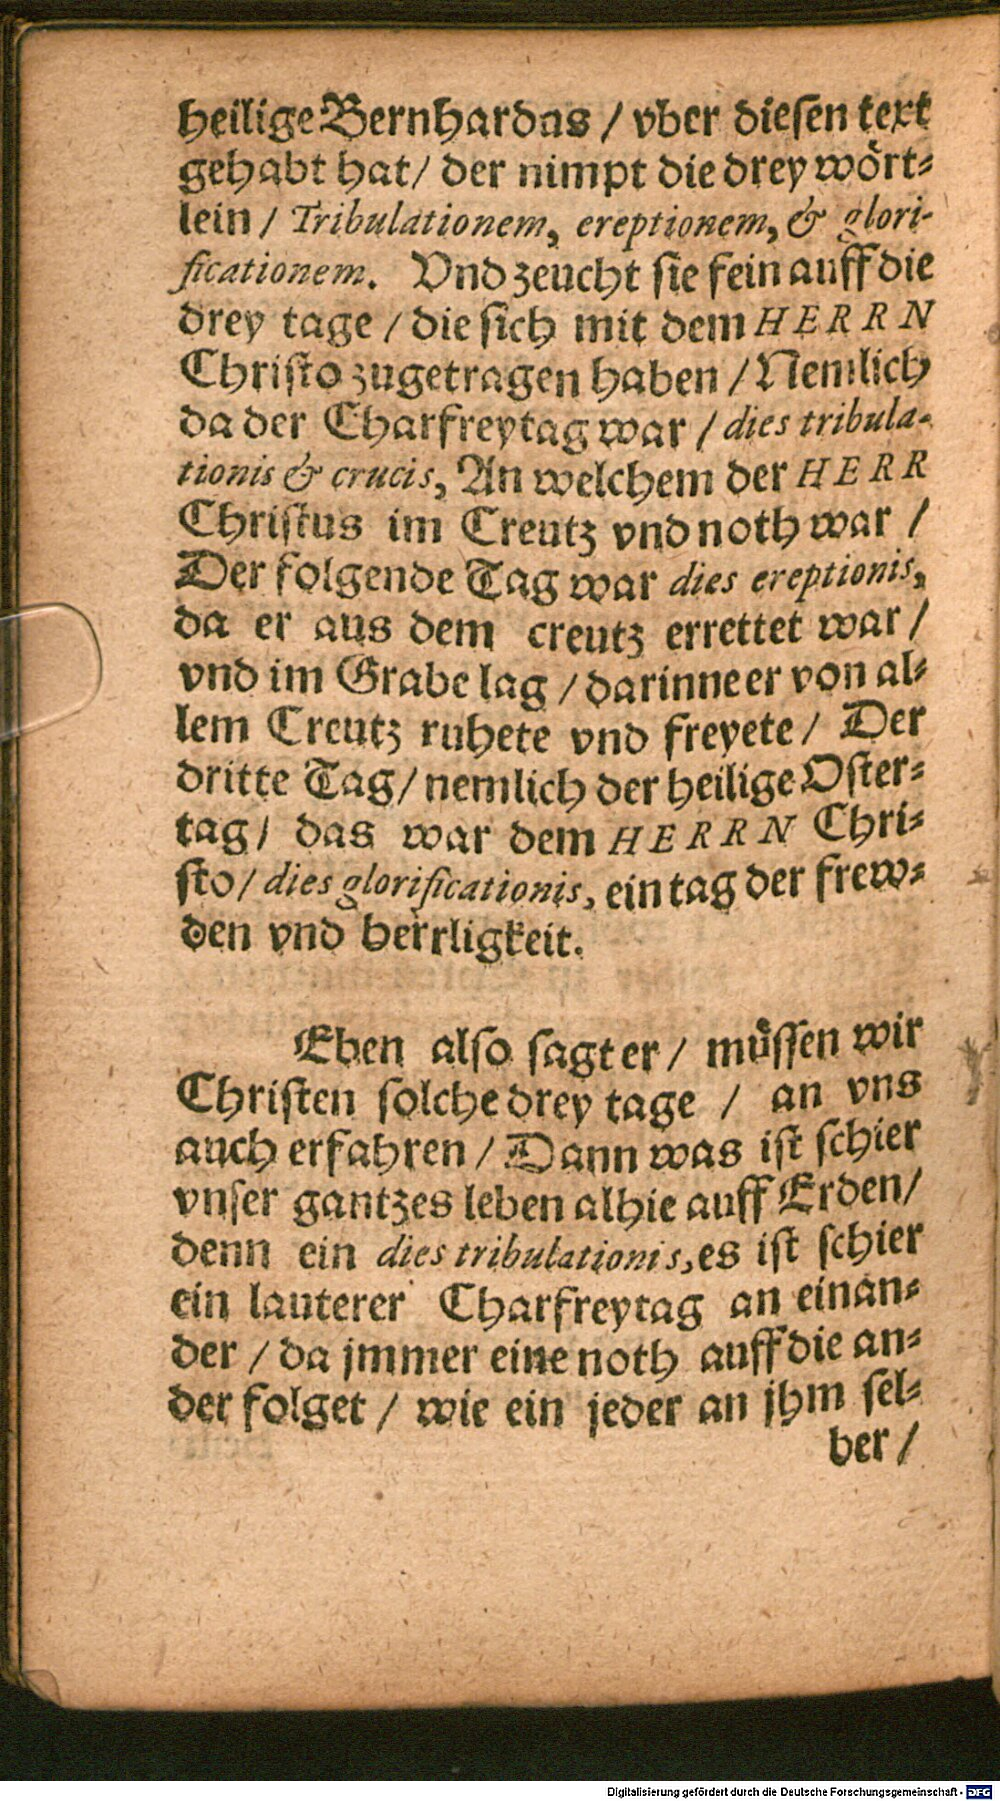 heilige Bernhardas / vber diesen text
gehabt hat / der nimpt die drey wört⸗
lein / Tribulationem, ereptionem, & glori-
ficationem. Vnd zeucht sie fein auff die
drey tage / die sich mit dem HERRN
Christo zugetragen haben / Nemlich
da der Charfreytag war / dies tribula-
tionis & crucis, An welchem der HERR
Christus im Creutz vnd noth war /
Der folgende Tag war dies ereptionis,
da er aus dem creutz errettet war /
vnd im Grabe lag / darinne er von al⸗
lem Creutz ruhete vnd freyete / Der
dritte Tag / nemlich der heilige Oster⸗
tag / das war dem HERRN Chri⸗
sto / dies glorificationis, ein tag der frew⸗
den vnd herrligkeit.
Eben also sagt er / müssen wir
Christen solche drey tage / an vns
auch erfahren / Dann was ist schier
vnser gantzes leben alhie auff Erden /
denn ein dies tribulationis, es ist schier
ein lauterer Charfreytag an einan⸗
der / da jmmer eine noth auff die an⸗
der folget / wie ein jeder an jhm sel⸗
ber /
Digitalisierung gefördert durch die Deutsche Forschungsgemeinschaft - DFG